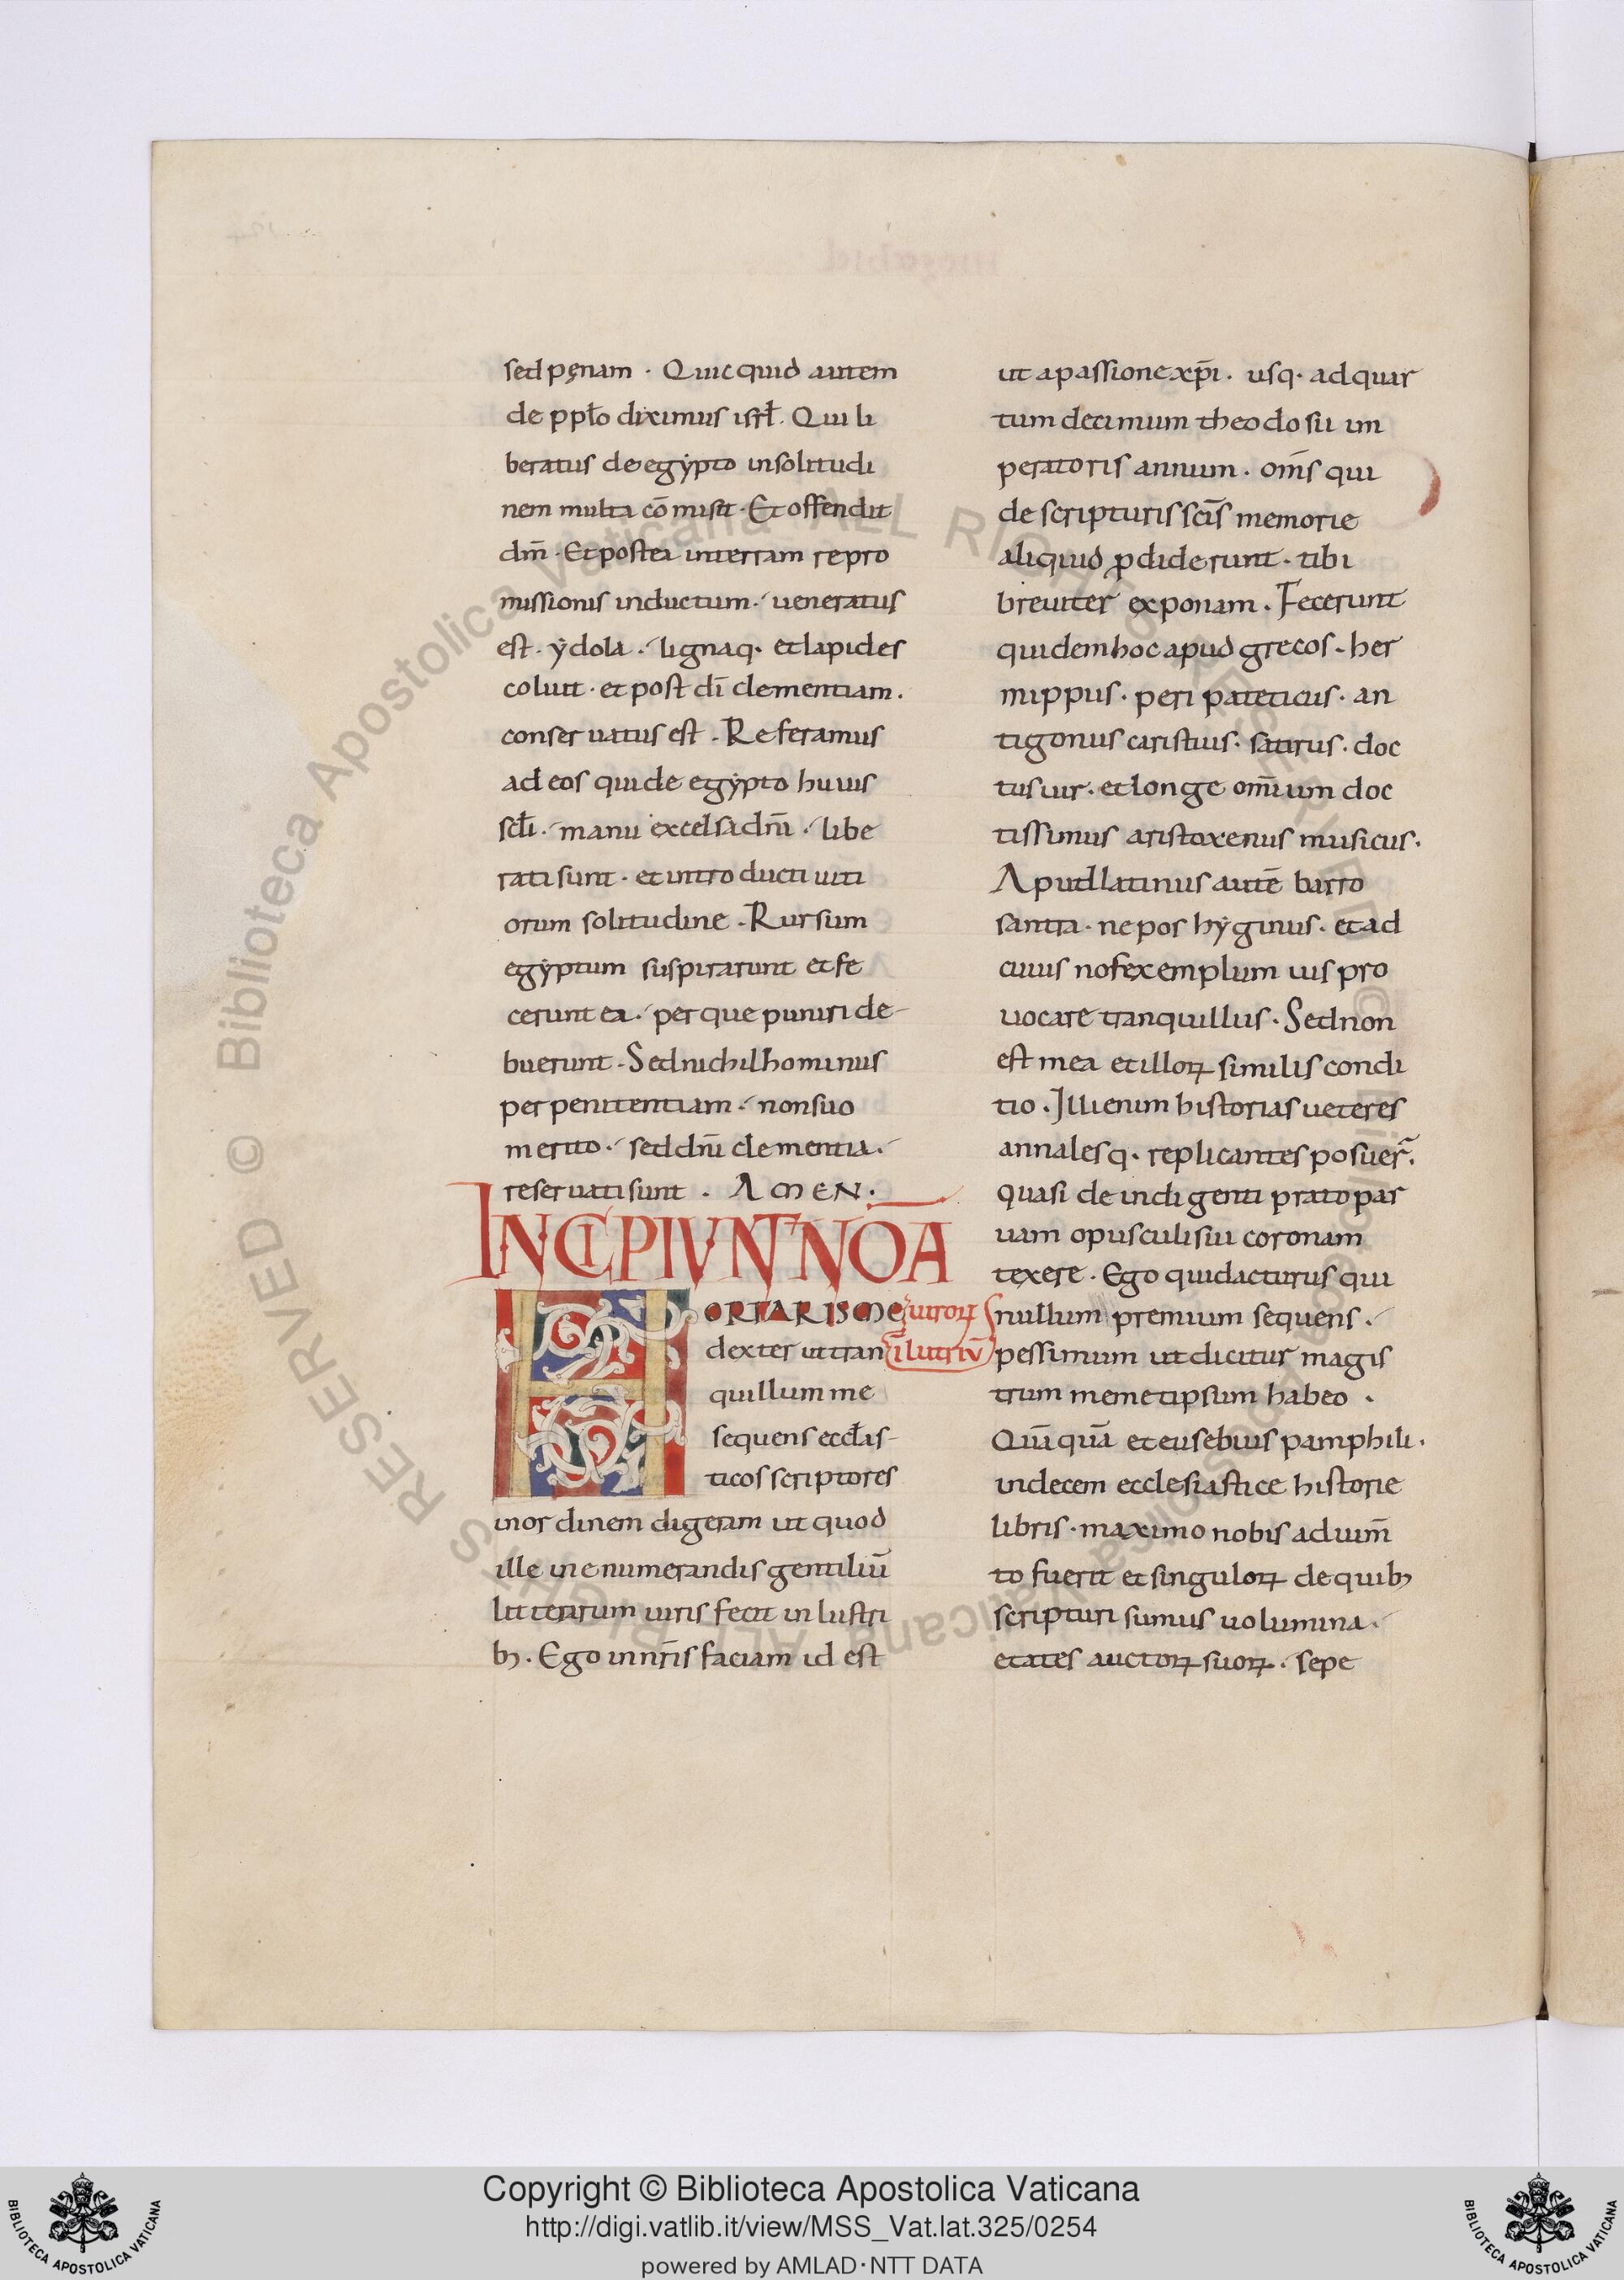 sed pęnam · Quicquid autem
de pp̄lo diximus isrł. Qui li
beratus de egẏpto insolitudi
nem multa cō misit · Et offendit
dm̄ · Et postea interram repro
missionis inductum · ueneratus
est · ẏdola · lignaq· et lapides
coluit · et post dī clementiam .
conseruatus est . Referamus
ad eos qui de egẏpto huius
scłi · manu excelsa dn̄i · libe
rati sunt · et introducti uiti
orum solitudine . Rursum
egẏptum suspirarunt et fe
cerunt ea · per que puniri de-
buerunt . Sed nichilhominus
per penitentiam · non suo
merito · sed dn̄i clementia ·
reseruati sunt . AMEN .
INCIPIVNT NOĀ
uirorꝝ
īllutriū
HORTARIS ME
dexter ut tran
quillum me
sequens eccłas-
ticos scriptores
inordinem digeram ut quod
ille in enumerandis gentiliū
litterarum uiris fecit in lustri
bꝫ . Ego in nr̄is faciam id est
ut a passione xp̄i · usq· ad quar
tum decimum theodosii im
peratoris annum . om̄s qui
de scripturis sc̄is memorie
aliquid ꝓdiderunt · tibi
breuiter exponam . Fecerunt
quidem hoc apud grecos · her
mippus · peri pateticus · an
tigonus caristius · satirus · doc
tus uir · et longe om̄ium doc
tissimus aristoxenus musicus .
Apud latinus autē barro
santra · nepos hẏginus · et ad
cuius nos exemplum uis pro
uocare tranquillus . Sed non
est mea et illorꝝ similis condi
tio . Illi enim historias ueteres
annalesq· replicantes posuer̄ .
quasi de indigenti prato par
uam opusculi sui coronam
texere . Ego quid acturus qui
nullum premium sequens .
pessimum ut dicitur magis
trum memetipsum habeo .
Quī quā et eusebius pamphili .
in decem ecclesiastice historie
libris · maximo nobis adium̄
to fuerit et singulorꝝ de quibꝫ
scripturi sumus uolumina ·
etates auctorꝝ suorꝝ · sepe
Copyright © Biblioteca Apostolica Vaticana
http://digi.vatlib.it/view/MSS_Vat.lat.325/0254
powered by AMLAD·NTT DATA
BIBLIOTECA APOSTOLICA VATICANA
BIBLIOTECA APOSTOLICA VATICANA